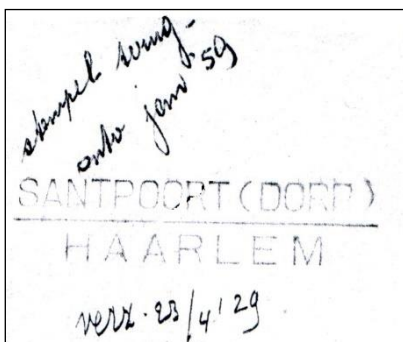 stempel
jan 59
SANTPOORT (DORP)
HAARLEM
verz. 23/4'29